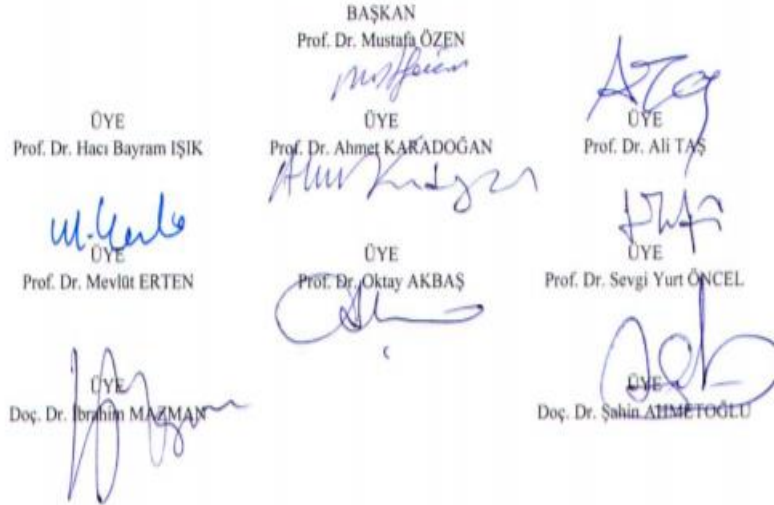 BAŞKAN
Prof. Dr. Mustafa ÖZEN
ÜYE
Prof. Dr. Hacı Bayram IŞIK
ÜYE
Prof. Dr. Ahmet KARADOĞAN
ÜYE
Prof. Dr. Ali TAŞ
ÜYE
Prof. Dr. Mevlüt ERTEN
ÜYE
Prof. Dr. Oktay AKBAŞ
ÜYE
Prof. Dr. Sevgi Yurt ÖNCEL
ÜYE
Doç. Dr. İbrahim MAZMAN
ÜYE
Doç. Dr. Şahin AHMETOĞLU